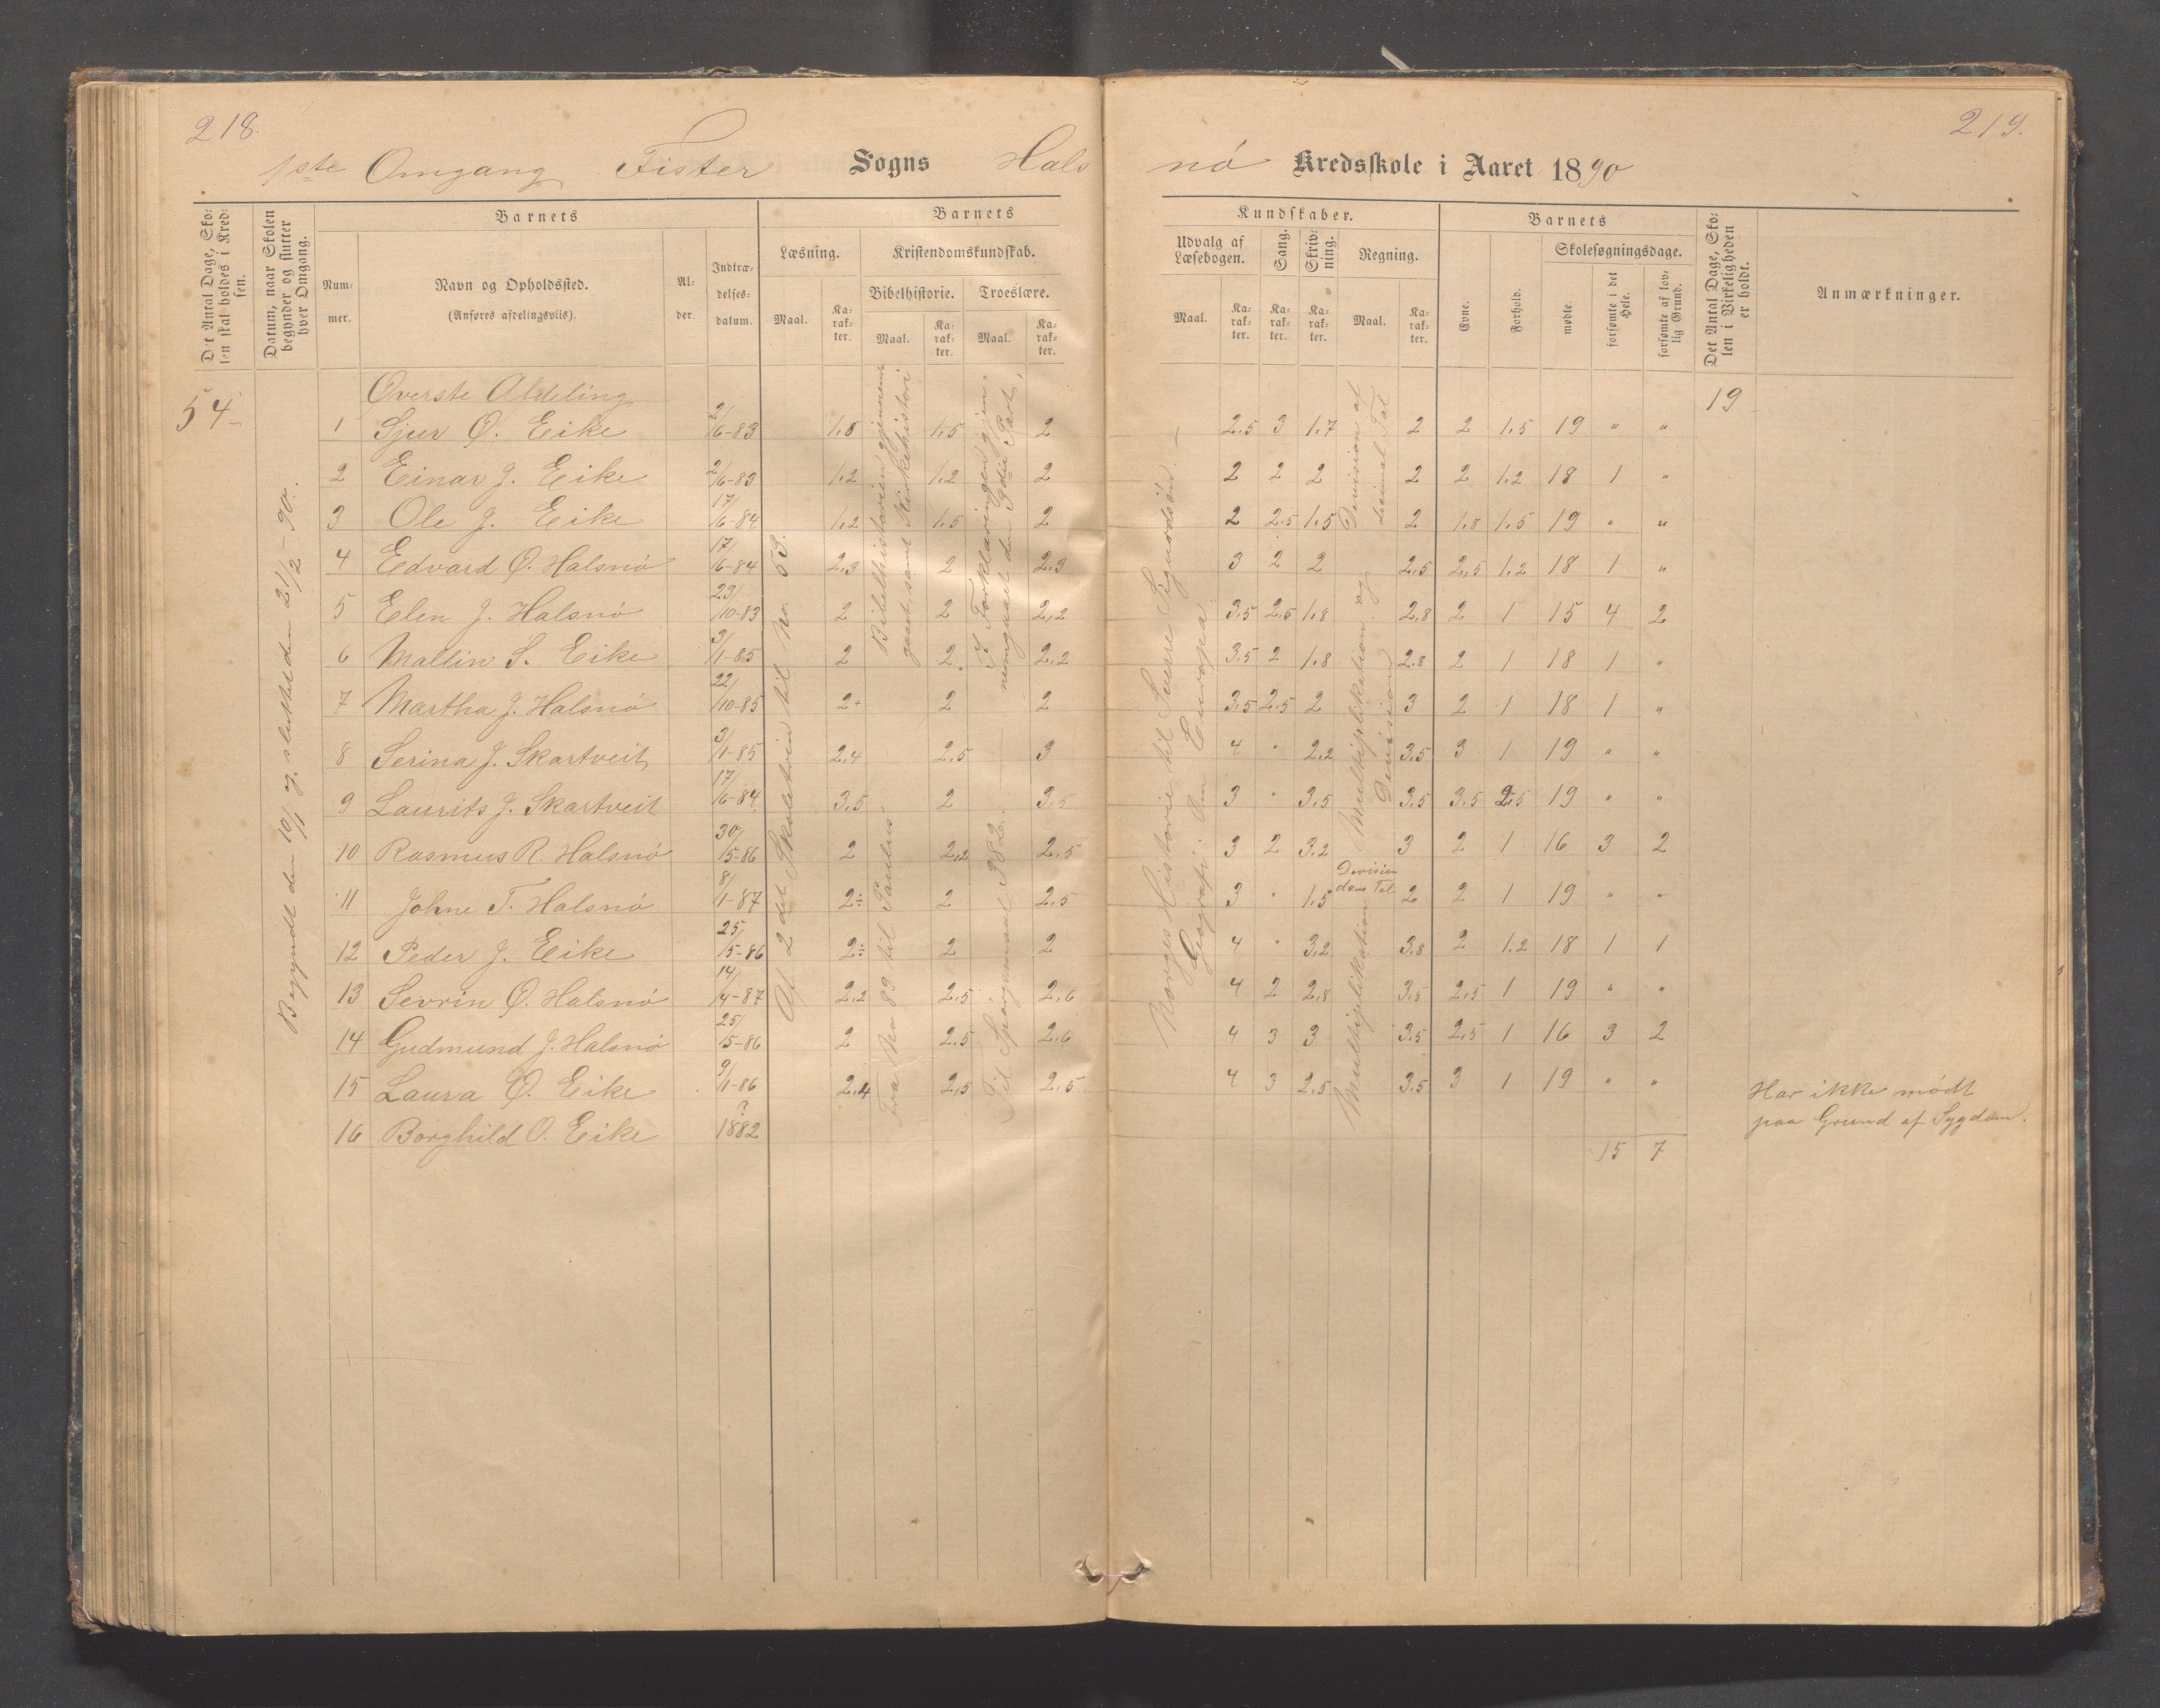 218.
219.
1ste Omgang Fister Sogns Halsnö Kredsskole i Aaret 1890
Det Antal Dage, Skolen skal holdes i Kredsen.
Datum, naar Skolen begynder og slutter hver Omgang.
Barnets
Nummer.
Navn og Opholdssted.
(Anføres afdelingsviis).
Alder.
Indtrædelsesdatum.
Barnets
Læsning.
Maal.
Karakter.
Kristendomskundskab.
Bibelhistorie.
Maal.
Karakter.
Troeslære.
Maal.
Karakter.
Kundskaber.
Udvalg af Læsebogen.
Maal.
Karakter.
Sang.
Karakter.
Skrivning.
Karakter.
Regning.
Maal.
Karakter.
Barnets
Evne.
Forhold.
Skolesøgningsdage.
mødte.
forsømte i det Hele.
forsømte af lovlig Grund.
Det Antal Dage, Skolen i Virkeligheden er holdt.
Anmærkninger.
54
Begyndt den 10/1 og sluttet den 21/2 - 90.
Øverste Afdeling
19
1 Sjur O. Eike 2/6-83 1.8 1.5 2 2.5 3 1.7 2 2 1.5 19 " "
2 Einar J. Eike 2/6-83 1.2 1.2 2 2 2 2 2 2 1.2 18 1 "
3 Ole J. Eike 17/6-84 1.2 1.5 2 2 2.5 1.5 2 1.8 1.5 19 " "
4 Edvard O. Halsnö 17/6-84 2.3 2 2.3 3 2 2 2.5 2.5 1.2 18 1 "
5 Elen J. Halsnö 23/10-83 2 2 2.2 3.5 2.5 1.8 2.8 2 1 15 4 2
6 Mallin S. Eike 3/1-85 2 2 2.2 3.5 2 1.8 2.8 2 1 18 1 "
7 Martha J. Halsnö 22/10-85 2+ 2 2 3.5 2.5 2 3 2 1 18 1 "
8 Serina J. Skartveit 3/1-85 2.4 2.5 3 4 " 2.2 3.5 3 1 19 " "
9 Laurits J. Skartveit 17/6-84 3.5 2 3.5 3 " 3.5 3.5 3.5 2.5 19 " "
10 Rasmus R. Halsnö 30/5-86 2 2.2 2.5 3 2 3.2 3 2 1 16 3 2
11 Johne T. Halsnö 8/1-87 2÷ 2 2.5 3 " 1.5 2 2 1 19 " "
12 Peder J. Eike 25/5-86 2÷ 2 2 4 " 3.2 3.8 2 1.2 18 1 1
13 Sevrin O. Halsnö 14/4-87 2.2 2.5 2.6 4 2 2.8 3.5 2.5 1 19 " "
14 Gudmund J. Halsnö 25/5-86 2 2.5 2.6 4 3 3 3.5 2.5 1 16 3 2
15 Laura O. Eike 9/1-86 2.4 2.5 2.5 4 3 2.5 3.5 3 1 19 " "
16 Borghild O. Eike ?1882
15 7
Har ikke mødt
paa Grund af Sygdom.
Af 2det Skoletrin til No 53.
Bibelhistorien gjennemgaaet samt Kirkehistori
Fra No 89 til Paulus.
I Forklaringen gjennemgaaet den 3die Part,
Til Spørgsmaal 382.
Norges Historie til Sverre Sigurdsön.
Geografi: Om Europa.
Division af desimal Tal
Multiplikation og Division
Division
Multiplikation